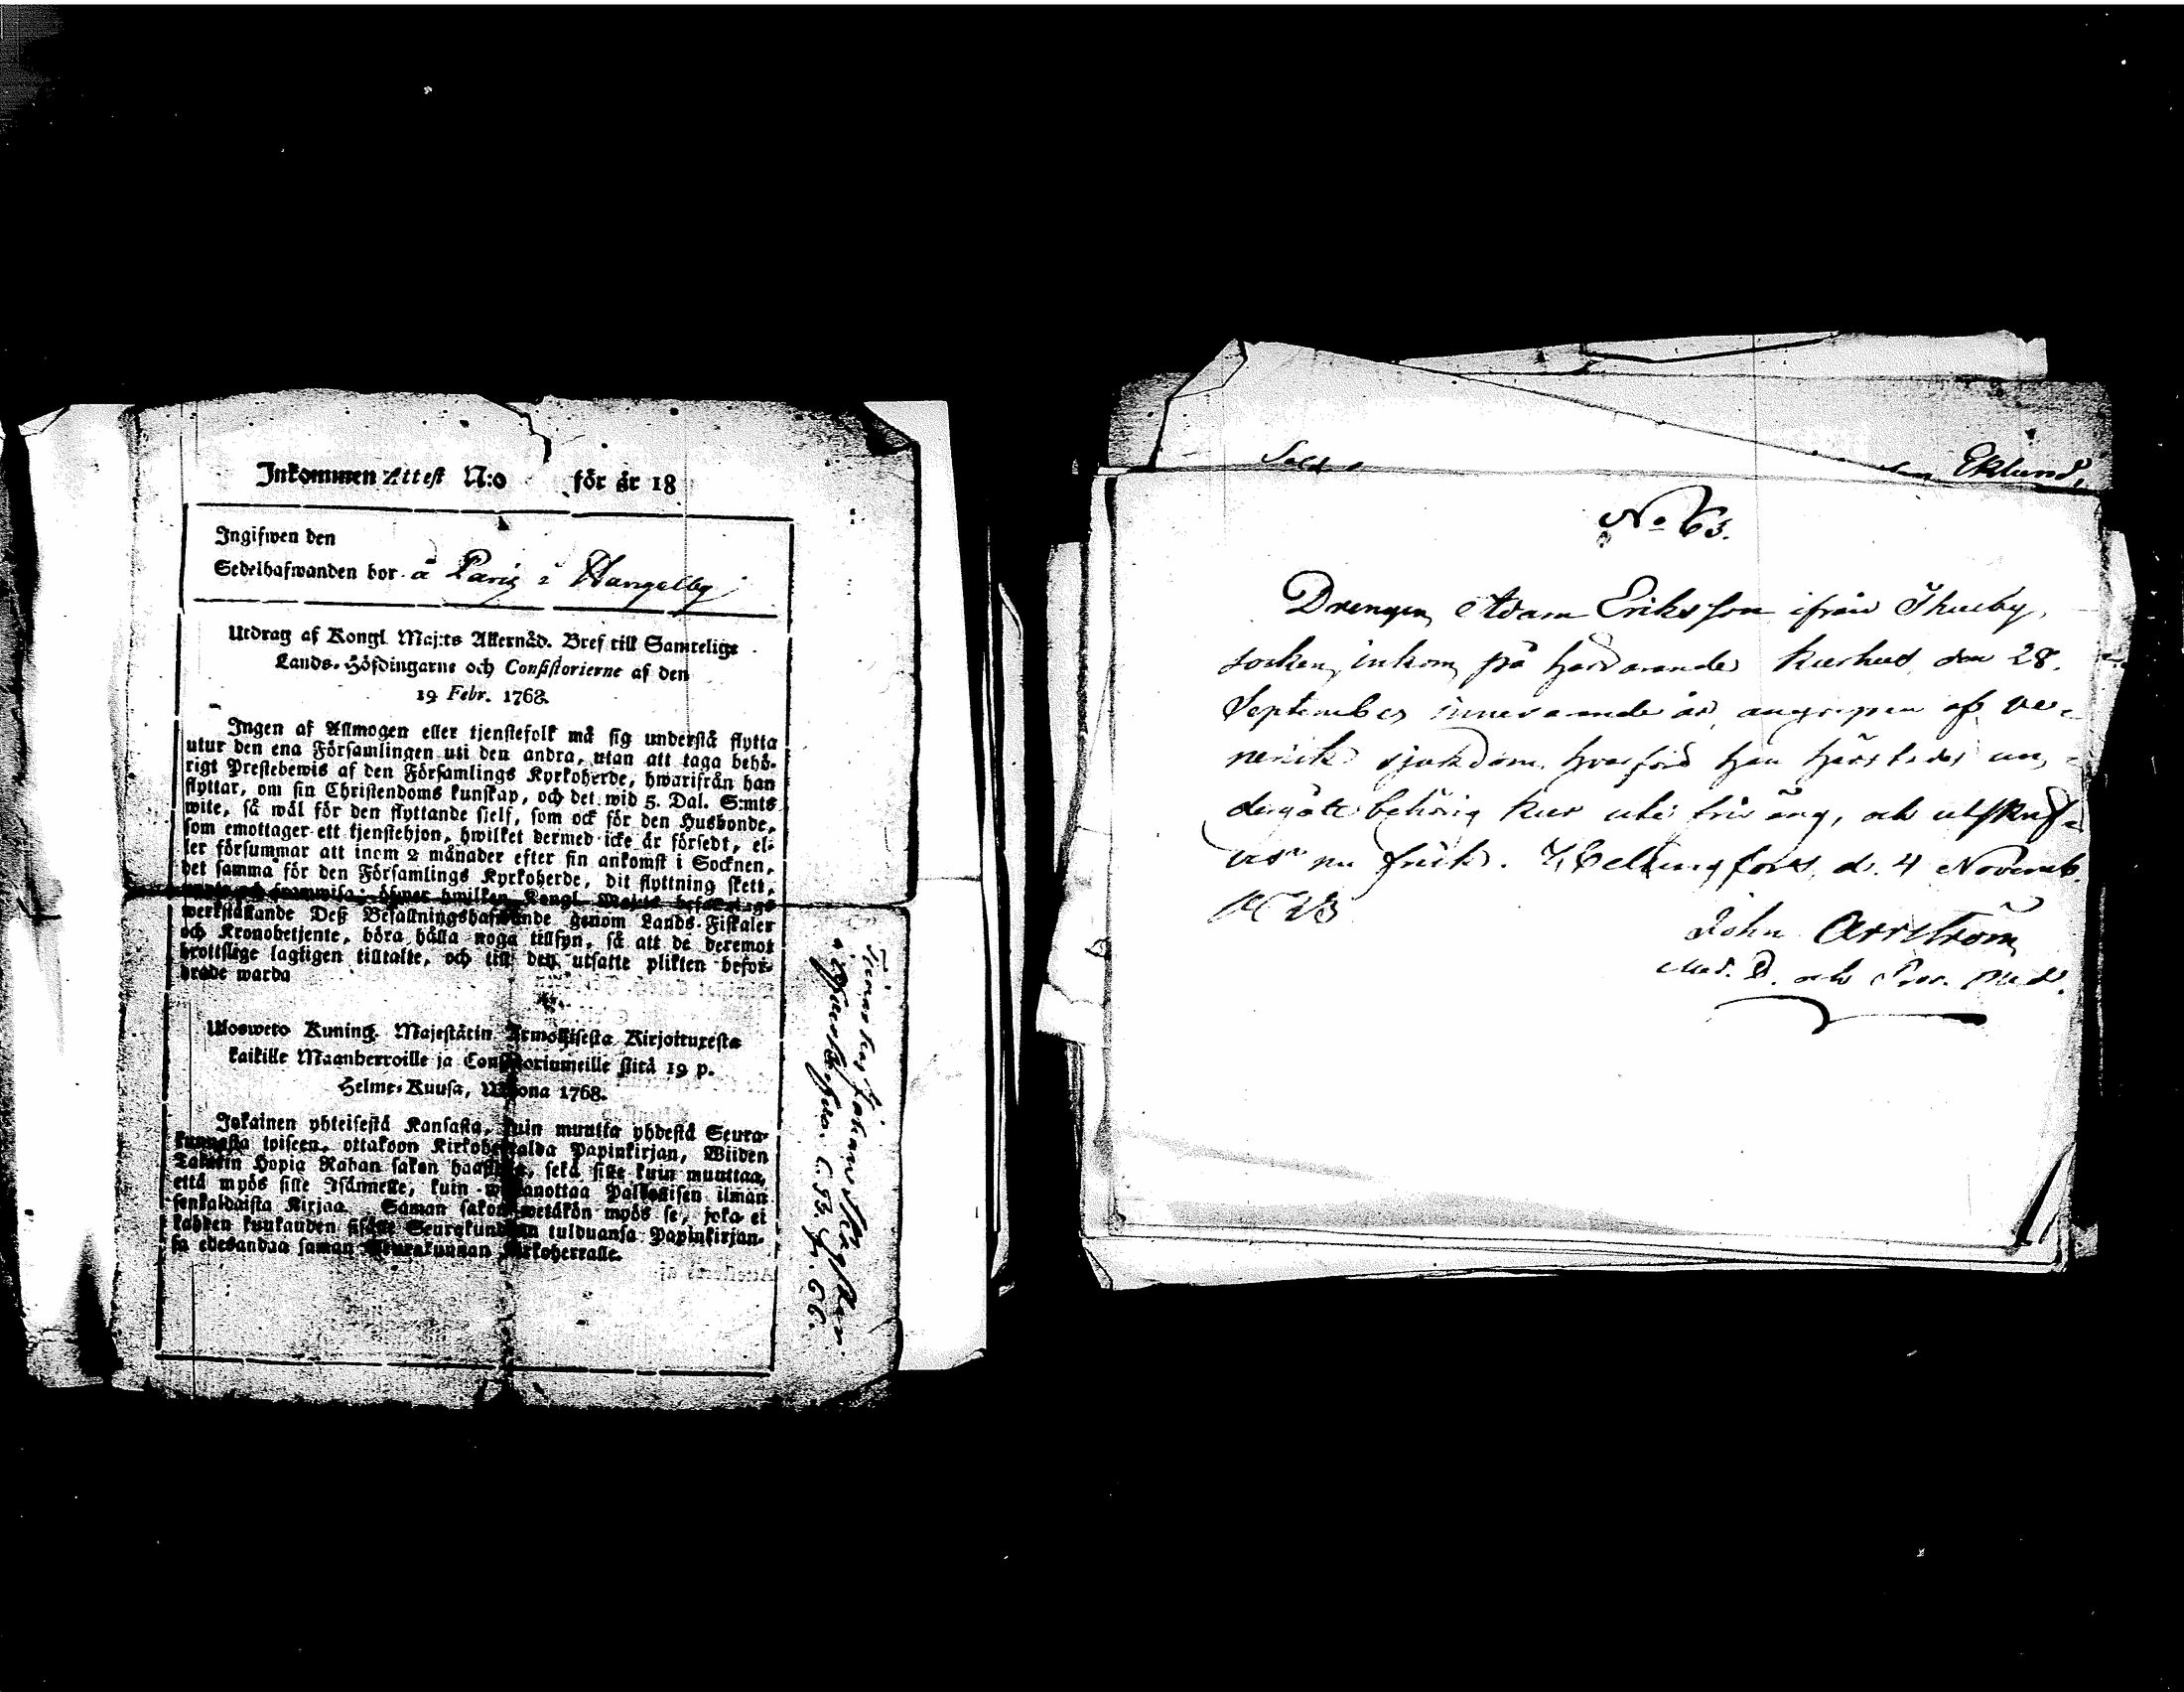 Inkommen Attest N:o för år 18
Ingifwen den
Sedelhafwanden bor å Paris i Hangelby
Utdrag af Kongl. Maj:ts Allernåd. Bref till Samtelige
Lands-Höfdingarne och Consistorierne af den
19 Febr. 1768.
Ingen af Allmogen eller tjenstefolk må sig understå flytta
utur den ena Församlingen uti den andra, utan att taga behö-
rigt Prestebewis af den Församlings Kyrkoherde, hwarifrån han
flyttar, om sin Christendoms kunskap, och det wid 5. Dal. S:mts
wite, så wäl för den flyttande sielf, som ock för den Husbonde,
som emottager ett tjenstehjon, hwilket dermed icke är försedt, el-
ler försummar att inom 2 månader efter sin ankomst i Socknen,
det samma för den Församlings Kyrkoherde, dit flyttning skett,
öfwer hwilket Kongl. Maj:ts
werkställande Deß Befallningshafwande genom Lands-Fiskaler
och Kronobetjente, böra hålla noga tillsyn, så att de deremot
brottslige lagligen tilltalte, och till den utsatte plikten befor-
drade warda
Ulosweto Kuning. Majestätin Armollisesta Kirjoituxesta
kaikille Maanherroille ja Consistoriumeille siitä 19 p.
Helme-Kuusa, Wuona 1768.
Jokainen yhteisestä Kansasta, kuin muutta yhdestä Seura-
kunnasta toiseen, ottakoon Kirkoherralda Papinkirjan, Wiiden
Talarin Hopia Rahan sakon haastolla, sekä sille kuin muuttaa,
että myös sille Isännelle, kuin wastanottaa Palkollisen ilman
senkaldaista Kirjaa. Saman sakon wetäkön myös se, joka ei
kahden kuukauden sisälle Seurakundaan tulduansa Papinkirjan-
sa edesandaa saman Seurakunnan Kirkoherralle.
C. 53. f. 66.
Eklund,
No 63.
Drengen Adam Eriksson ifrån Thusby
socken, inkom på härvarande Kurhus den 28.
September innevarande år, angripen af ve-
nerisk sjukdom, hvarföre han härstedes un-
dergått behörig kur uti fri äng, och utskrif-
ves nu frisk. Helsingfors, d. 4 Novemb.
John Arrström
Med. D. och Prov. Med.